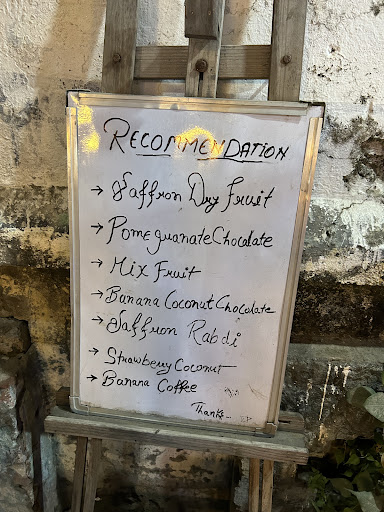 RECOMMENDATION
→ Saffron Dry Fruit
→ PomeguanateChocolate
→ Mix Fruit
→ Banana Coconut Chocolate
→ Saffron Rabdi
→ Strawberry Coconut
→ Banana Coffee
Thanks..